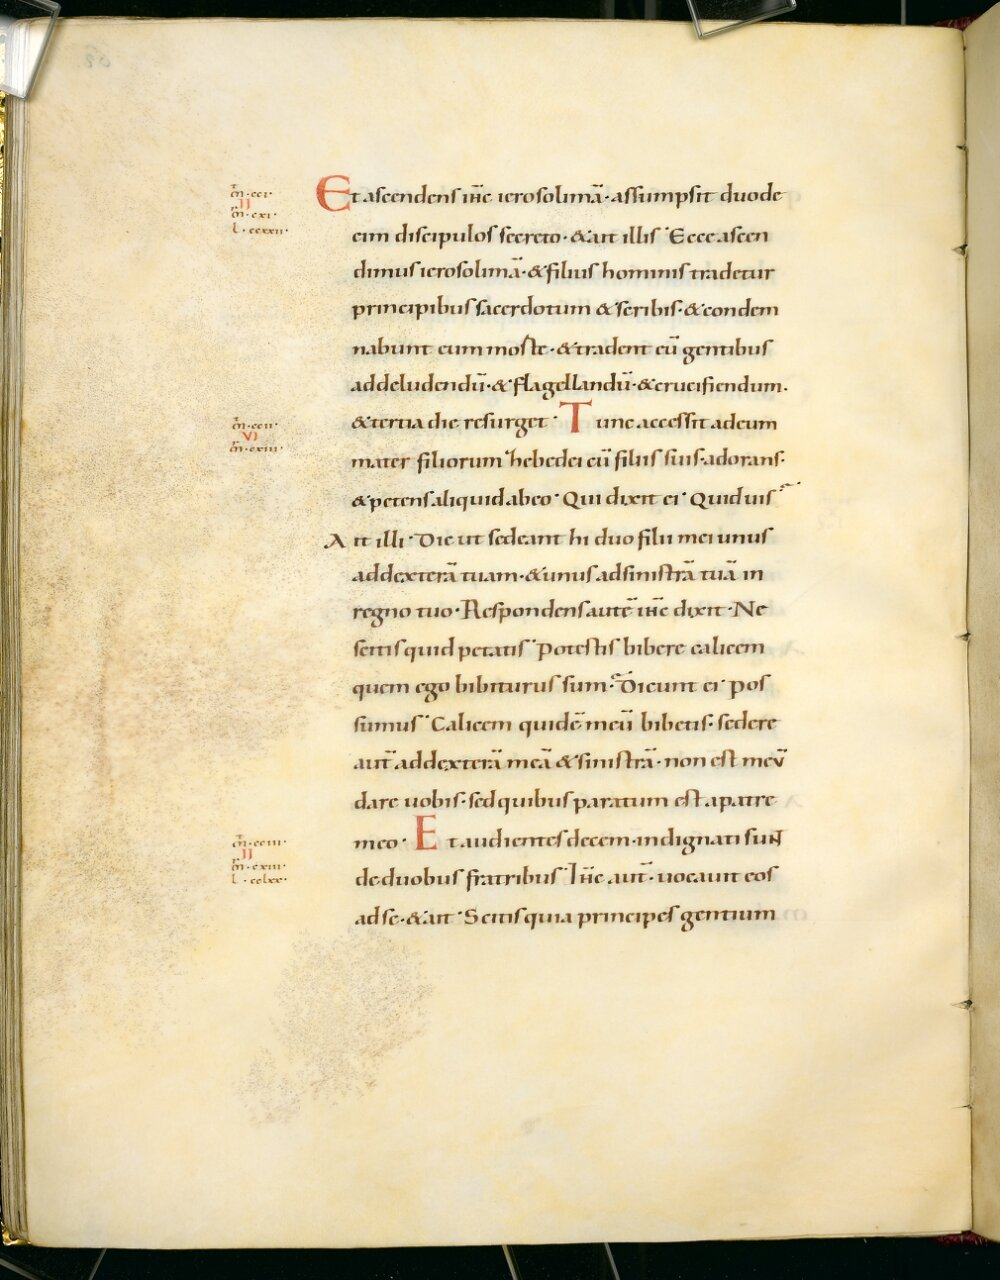 m̄·cci·
II
m̄·cxi·
l·ccxxii·
Et ascendens ih̄c ierosolimā· assumpsit duode
cim discipulos secreto· & ait illis· Ecce ascen
dimus ierosolimā· & filius hominis tradetur
principibus sacerdotum & scribis· & condem
nabunt eum morte· & tradent eū gentibus
ad deludendū· & flagellandū· & crucifiendum·
m̄·ccii·
VI
m̄·cxiii·
& tertia die resurget· Tunc accessit ad eum
mater filiorum hebedei cū filiis suis· adorans·
& petens aliquid ab eo· Qui dixit ei· Quid uis
Ait illi· Dic ut sedeant hi duo filii mei unus
ad dexterā tuam· & unus ad sinistrā tuā in
regno tuo· Respondens autē ih̄c dixit· Ne
scitis quid petatis· Potestis bibere calicem
quem ego bibiturus sum· Dicunt ei· pos
sumus· Calicem quidē meū bibetis· sedere
aut̄ ad dexterā meā & sinistrā· non est meū
dare uobis· sed quibus paratum est a patre
m̄·cciii·
II
m̄·cxiii·
l·cclxx·
meo· Et audientes decem· indignati suNT
de duobus fratribus· Ih̄c aut̄· uocauit eos
ad se· & ait· Scitis quia principes gentium